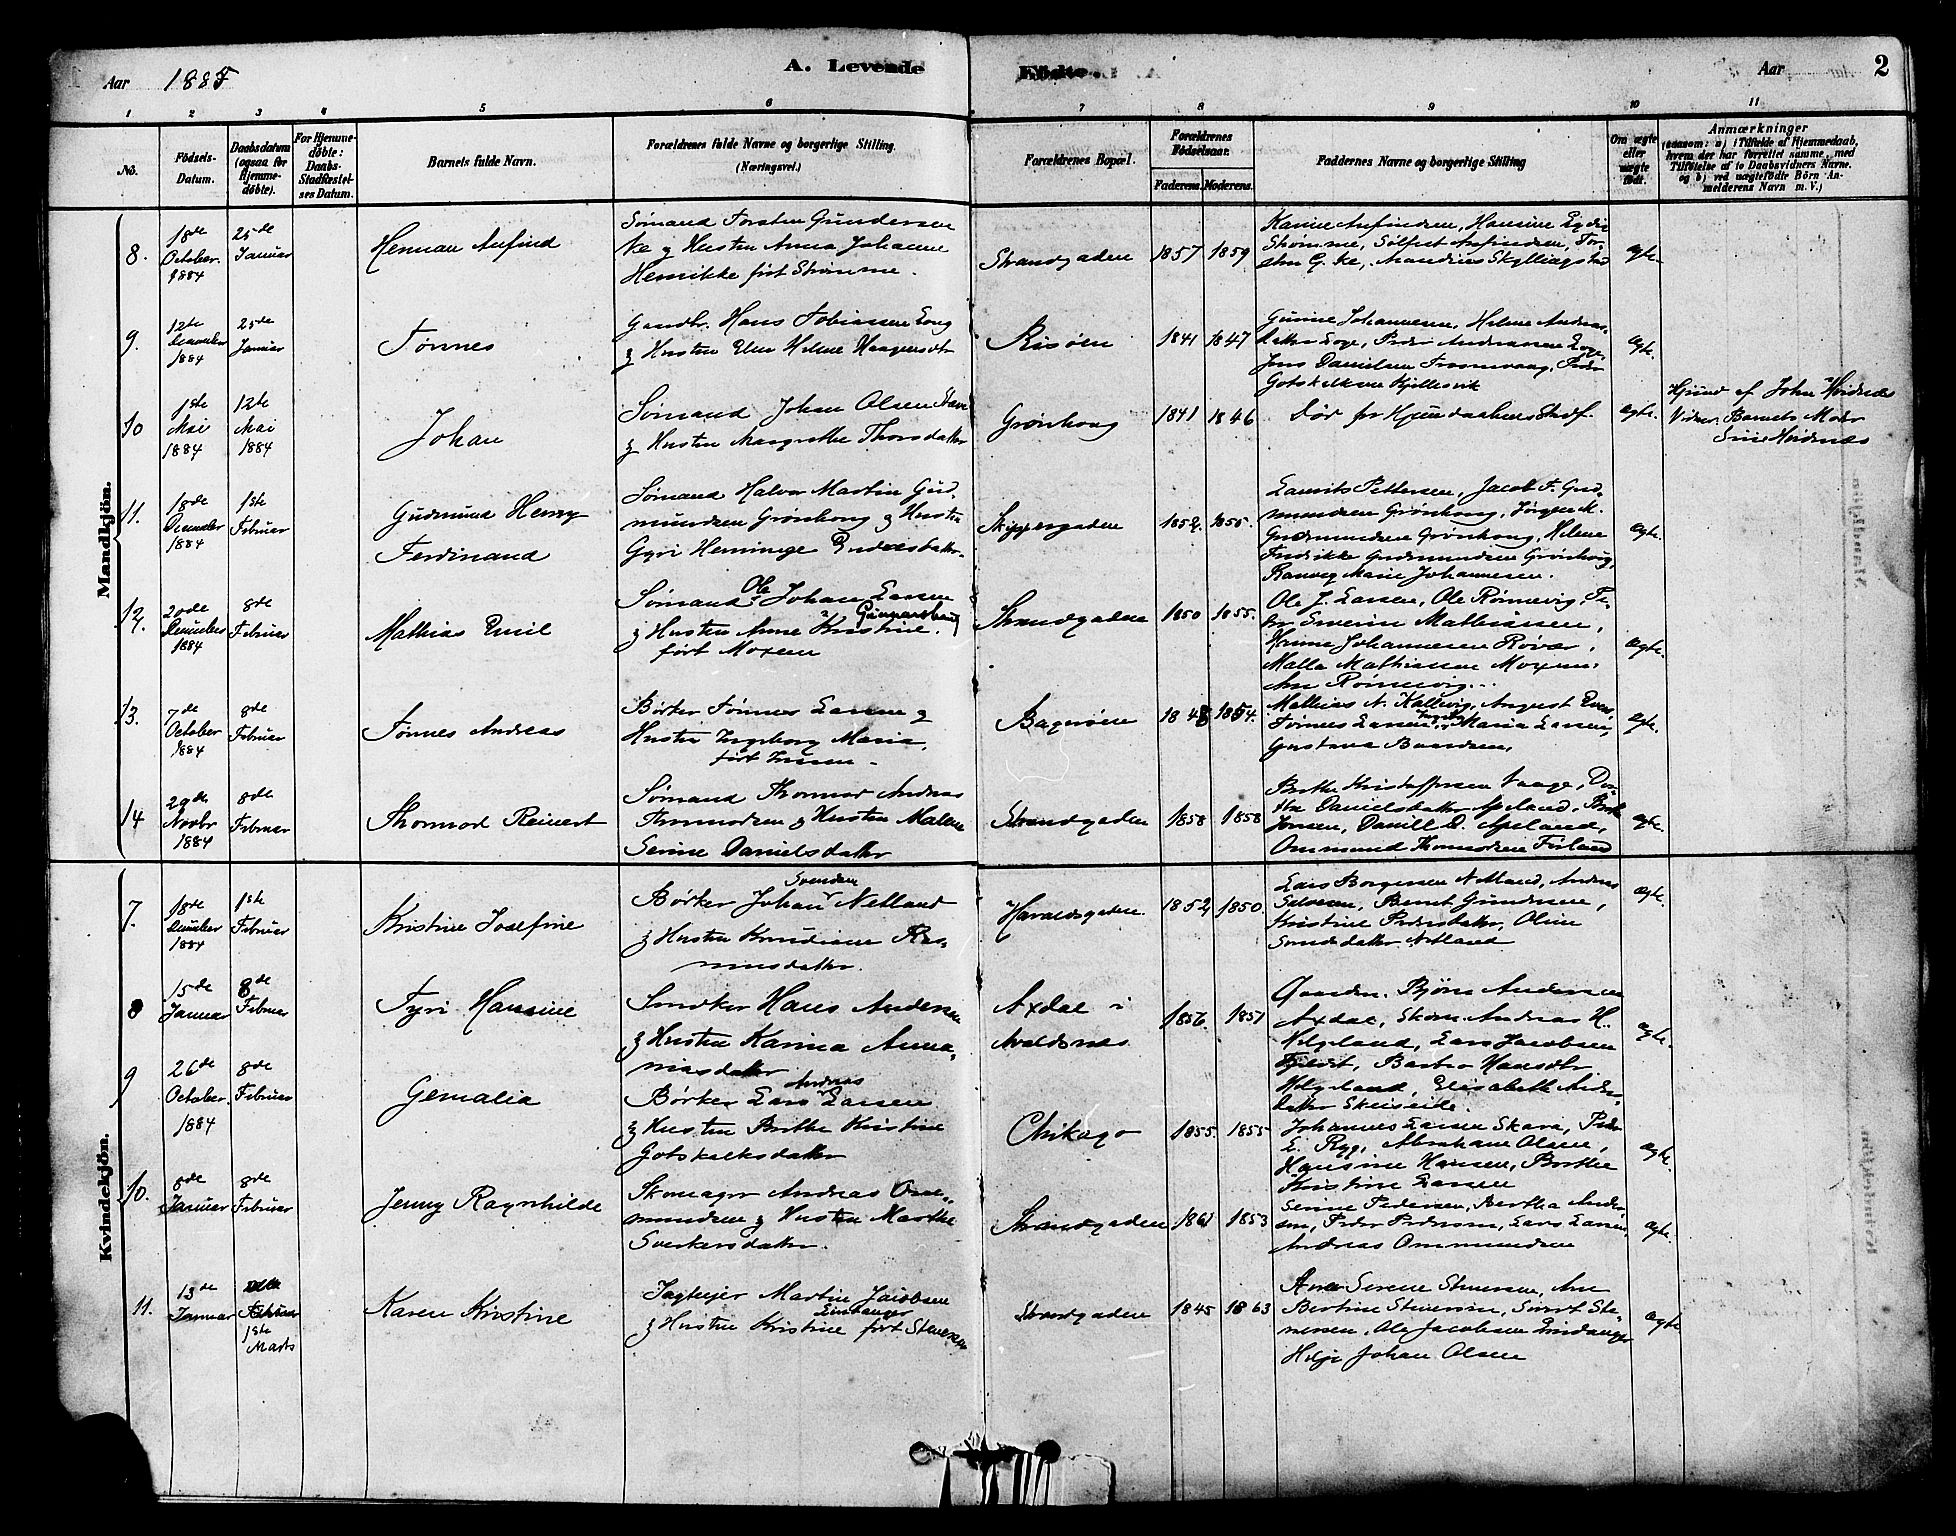 Aar 1885 A. Levende Fødte. Aar 2
1 2 3 4 5 6 7 8 9 10 11
No.
Födsels-Datum.
Daabsdatum (ogsaa for Hjemme-døbte).
For Hjemme-døbte: Daabs Stadfæstel-ses Datum.
Barnets fulde Navn.
Forældrenes fulde Navne og borgerlige Stilling. (Næringsvei.)
Forældrenes Bopæl.
Forældrenes Fødselsaar. Faderens. Moderens.
Faddernes Navne og borgerlige Stilling
Om ægte eller uægte født.
Anmærkninger (saasom: a) i Tilfælde af Hjemmedaab, hvem der har forrettet samme, med Tilføielse af to Daabsvidners Navne. og b) ved uægtefödte Börn An-melderens Navn m. V.)
Mandkjön.
8. 18de October. 1884
25de Januar
Herman Anfind
Sømand Torsten Gundersen
Ke og Hustru Anna Johanne
Henrikke født Strømme.
Strandgaden 1857 1859
Karine Anfindsen, Hansine
Strømme, Anfindsen, Tor-
sten G. Ke,
ægte.
9. 12te December 1884
25de Januar
Tønnes
Gaardbr. Hans Tobiassen
og Hustru Elen Helene
Risøen 1841 1847
Johannesen, Helene Andreas-
datter Peder Andreassen
Jens Danielsen Peder
Gotskalksen Kjellesvik
ægte.
10 1ste Mai 1884
12te Mai 1884
Johan
Sømand Johan Olsen
og Hustru Margrethe Thorsdatter
Grønhoug 1841 1846
ægte.
Hjemd af John
Vidner. Barnets Moder
11. 18de December 1884
1ste Februar
Gudmund Henry
Ferdinand
Sømand Halvor Martin Gud-
mundsen Grønhoug og Hustru
Gyri Endresdatter.
Skippergaden 1852. 1855.
Laurits Pettersen, Jacob F. Gud-
mundsen Grønhoug, Jørgen M.
Gudmundsen Grønhoug, Helene
Fredrikke Gudmundsen Grønhoug,
Ranveg Marie Johannesen.
ægte.
12. 20de December 1884
8de Februar
Mathias Emil
Sømand Ole Johan Larsen
og Hustru Anne Kristine. Gunnarshaug
født Moxen
Strandgaden 1850 1855.
Ole J. Larsen, Ole Rønnevig, Pe-
der Mathiassen,
Johannesen Røvær,
Malla Mathiassen Moxen,
Rønnevig.
ægte.
13. 7de October 1884
8de Februar
Tønnes Andreas
Bøker Tønnes Larsen og
Hustru Ingeborg Maria,
født
Bagerøen 1848 1854.
Mathias N. Kallevig, August
Tønnes Larsen, Maria Larsen,
Gustava
ægte.
14 29de Novbr 1884
8de Februar
Thormod Reinert
Sømand Thormod Andreas
Thormodsen og Hustru Malene
Serine Danielsdatter
Strandgaden 1858 1858
Kristoffersen Vaage,
Danielsdatter Apeland,
Jensen, Daniel D. Apeland,
Ommund Thormodsen
ægte.
Kvindekjön.
7. 18de December 1884
1ste Februar
Kristine Josefine
Bøker Johan Svendsen Netland
og Hustru Knudiane Ras-
musdatter.
Haraldsgaden. 1852 1850.
Lars Børgesen Netland, Andreas
Salvesen, Bernt Gundersen,
Kristine Pedersdatter, Oline
Svendsdatter Netland
ægte.
8 15de Januar
8de Februar
Tyri Hansine
Snedker Hans Andersen
og Hustru Karina Anna-
niasdatter
Axdal i
Avaldsnes 1856. 1851
Gaardbr. Bjørn Andersen
Axdal, Skom. Andreas H.
Helgeland, Lars Jacobsen
Barbro Hansdtr
Helgeland, Elisabeth Anders-
datter Skeiseide.
ægte.
9 26de October. 1884
8de Februar
Gemalia
Bøker Lars Andreas Larsen
og Hustru Brithe Kristine
Gotskalksdatter
Chikago 1855. 1855
Johannes Larsen Skara, Peder
L. Ryg, Abraham Olsen,
Hansine Hansen, Berthe
Kristine Larsen
ægte.
10. 8de Januar
8de Februar
Jenny Raynhilde
Skomager Andreas Om-
mundsen og Hustru Marthe
Sverkersdatter.
Strandgaden 1861 1853
Serine Pedersen, Bertha Ander-
sen, Peder Pedersen, Lars Larsen,
Andreas Ommundsen
ægte.
11. 13de Januar
Februar
1ste Marts
Karen Kristine
Jagteier Martin Jacobsen
og Hustru Kristine Eindanger født Stenersen
Strandgaden 1845 1863
Serene Stenersen, Ane
Bertine Stenersen, Sivert Ste-
nersen, Ole Jacobsen Eindanger
Helje Johan Olsen
ægte